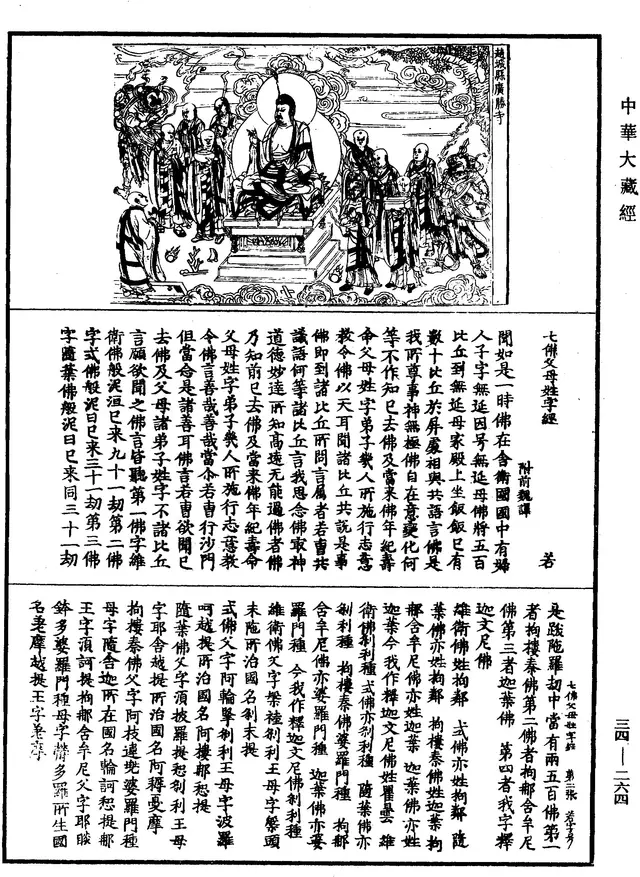 中華大藏經
趙城縣廣勝寺
七佛父母姓字經　若
附前魏譯
聞如是一時佛在舍衛國國中有婦
人子字無延因号無延母佛將五百
比丘到無延母家殿上坐飯飯已有
數十比丘於屏處相與共語言佛是
我所尊事神無極佛自在意變化何
等不作知已去佛及當來佛年紀壽
命父母姓字弟子幾人所施行志意
教令佛以天耳聞諸比丘共說是事
佛即到諸比丘所問言屬者若曹共
議語何等諸比丘言我思念佛最神
道德妙達所知高遠无能過佛者佛
乃知前已去佛及當來佛年紀壽命
父母姓字弟子幾人所施行志意教
令佛言善哉善哉當尒若曹行沙門
但當念是諸善耳佛言若曹欲聞已
去佛及父母諸弟子姓字不諸比丘
言願欲聞之佛言皆聽第一佛字維
衛佛般泥洹已來九十一劫第二佛
字式佛般泥曰已來三十一劫第三佛
字隨葉佛般泥曰已來同三十一劫
七佛父母姓字經　第二張　若字号
是跋陁羅劫中當有兩五百佛第一
者拘樓秦佛第二佛者拘那含牟尼
佛第三者迦葉佛　第四者我字釋
迦文尼佛
維衛佛姓拘鄰　式佛亦姓拘鄰　隨
葉佛亦姓拘鄰　拘樓秦佛姓迦葉拘
那含牟尼佛亦姓迦葉　迦葉佛亦姓
迦葉今我作釋迦文尼佛姓瞿曇　維
衛佛剎利種　式佛亦剎利種　隨葉佛亦
剎利種　拘樓秦佛婆羅門種　拘那
含牟尼佛亦婆羅門種　迦葉佛亦婆
羅門種　今我作釋迦文尼佛剎利種
維衛佛父字槃裱剎利王母字槃頭
末陁所治國名剎末提
式佛父字阿輪拏剎利王母字波羅
呵越提所治國名阿樓那惒提
隨葉佛父字須波羅提惒剎利王母
字耶舍越提所治國名阿耨憂摩
拘樓秦佛父字阿枝違兜婆羅門種
母字隨舍迦所在國名輪訶惒提那
王字須訶提拘那含牟尼父字耶睒
鉢多婆羅門種母字欝多羅所在國
名差摩越提王字差摩
三四—二六四